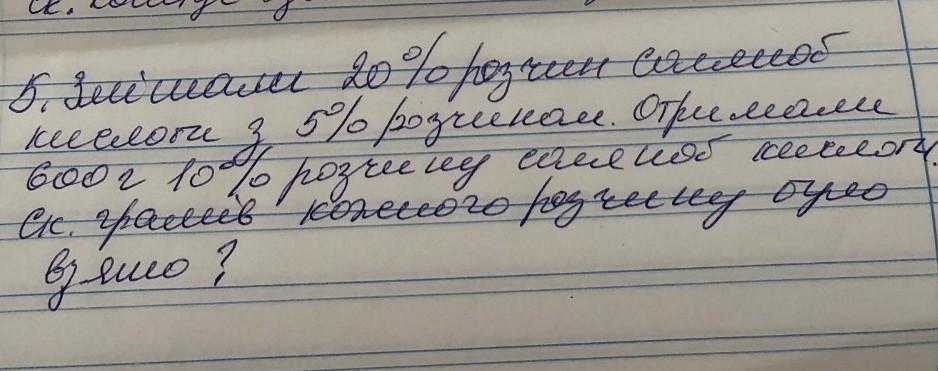 5. Змішали 20% розчин соляної
кислоти з 5% розчином. Отримали
600 г 10% розчину соляної кислоти.
Ск. грамів кожного розчину було
взято?